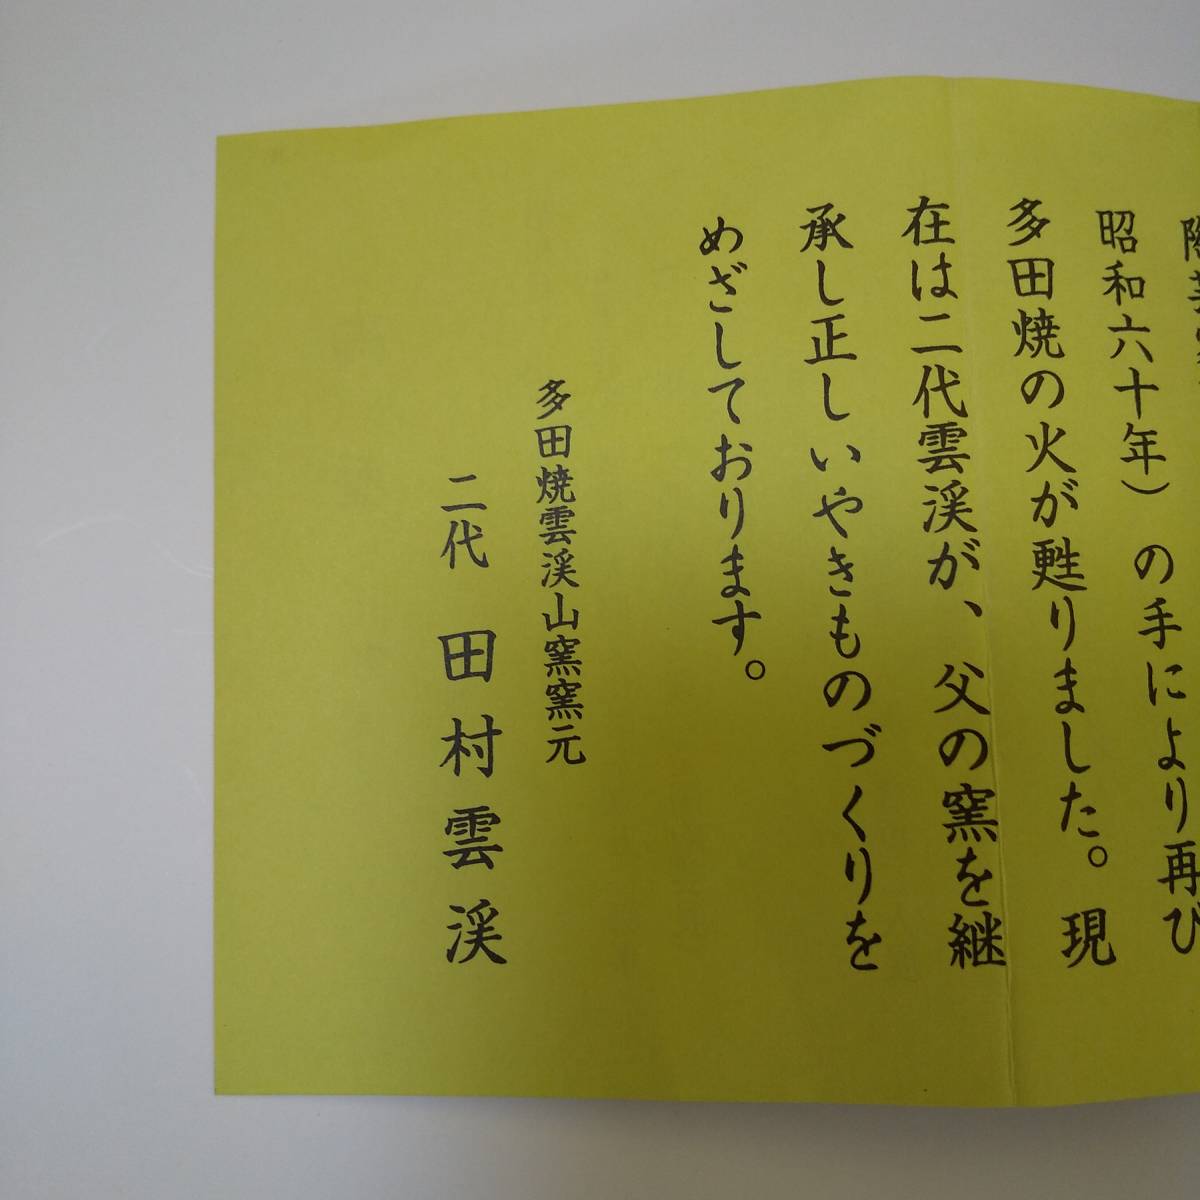 昭和六十年）の手により再び
多田焼の火が甦りました。現
在は二代雲渓が、父の窯を継
承し正しいやきものづくりを
めざしております。
多田焼雲渓山窯窯元
二代 田村雲渓